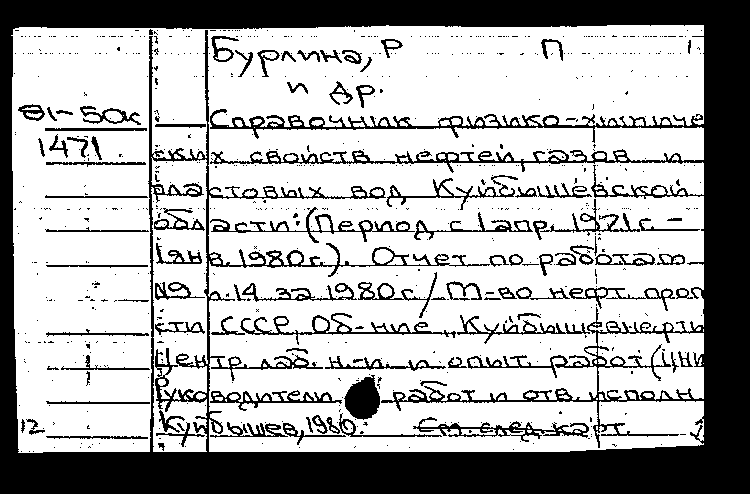 Бурлина, Р П
и др.
81-50к Справочник физико-химиче
1471 ских свойств нефтей, газов и
пластовых вод Куйбышевской
области: (Период с 1 апр. 1971г. –
1 янв. 1980г.). Отчет по работам
№9 п.14 за 1980г. / М-во нефт. пром
сти СССР, Об-ние „Куйбышевнефть
Центр. лаб. н.-и. и опыт. работ (ЦНИ
Руководители работ и отв. исполн.
12 Куйбышев, 1980. См. след. карт.